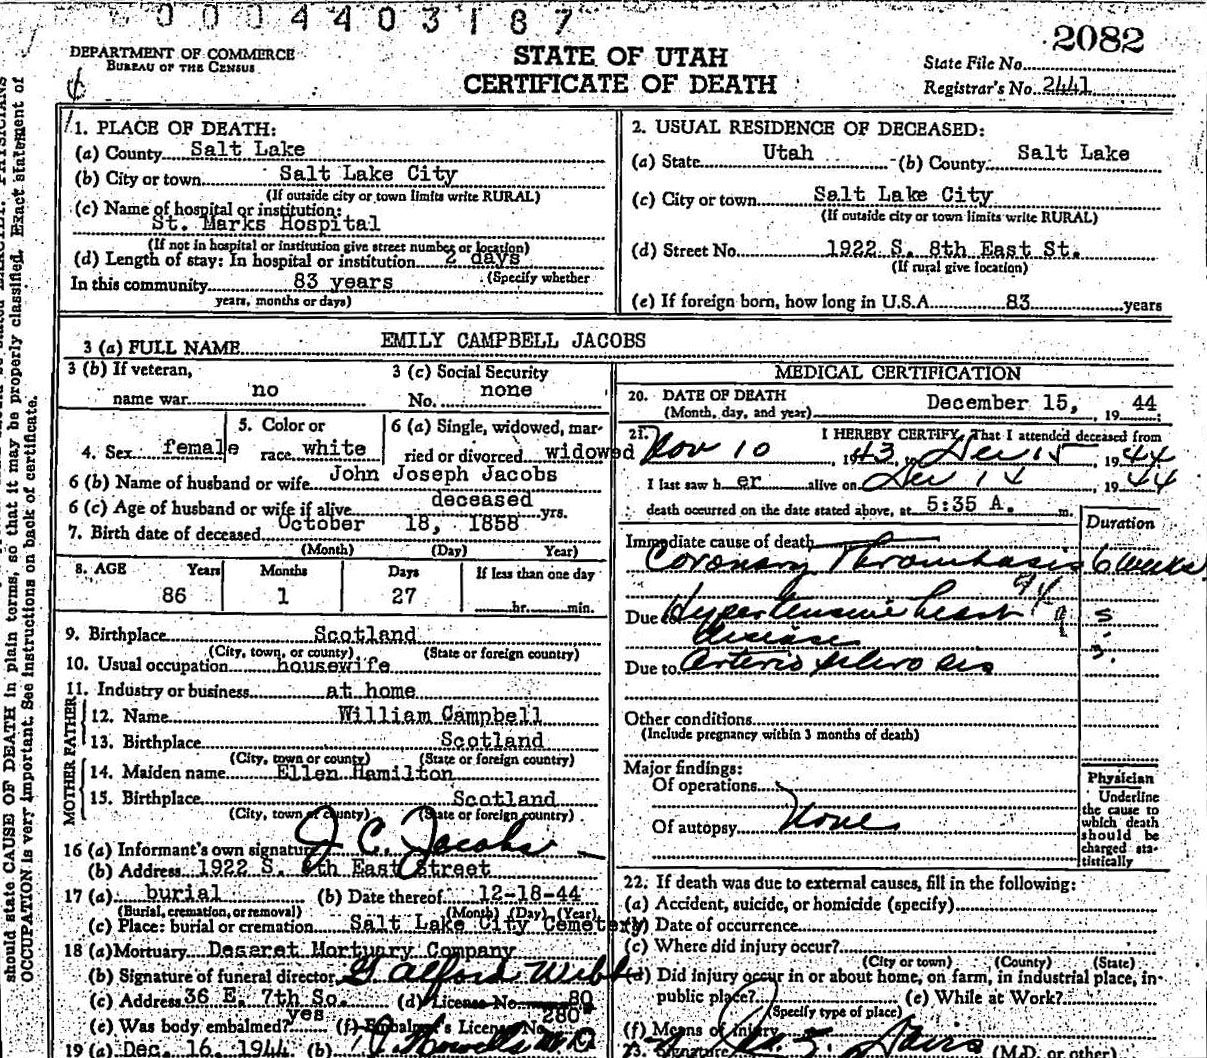 0004403187
2082
DEPARTMENT OF COMMERCE
BUREAU OF THE CENSUS
STATE OF UTAH
CERTIFICATE OF DEATH
State File No.
Registrar's No. 2441
should state CAUSE OF DEATH in plain terms, so that it may be properly classified. Exact statement of
OCCUPATION is very important. See instructions on back of certificate.
1. PLACE OF DEATH:
(a) County Salt Lake
(b) City or town Salt Lake City
(If outside city or town limits write RURAL)
(c) Name of hospital or institution:
St. Marks Hospital
(If not in hospital or institution give street number or location)
(d) Length of stay: In hospital or institution 2 days
(Specify whether
In this community 83 years
years, months or days)
2. USUAL RESIDENCE OF DECEASED:
(a) State Utah (b) County Salt Lake
(c) City or town Salt Lake City
(If outside city or town limits write RURAL)
(d) Street No. 1922 S. 8th East St.
(If rural give location)
(e) If foreign born, how long in U.S.A. 83 years
3 (a) FULL NAME EMILY CAMPBELL JACOBS
3 (b) If veteran, name war no
3 (c) Social Security No. none
4. Sex female
5. Color or race white
6 (a) Single, widowed, married or divorced widowed
6 (b) Name of husband or wife John Joseph Jacobs
6 (c) Age of husband or wife if alive deceased yrs.
7. Birth date of deceased October 18, 1858
(Month) (Day) Year)
8. AGE Years Months Days If less than one day
86 1 27 hr. min.
9. Birthplace Scotland
(City, town, or county) (State or foreign country)
10. Usual occupation housewife
11. Industry or business at home
FATHER
12. Name William Campbell
13. Birthplace Scotland
(City, town or county) (State or foreign country)
MOTHER
14. Maiden name Ellen Hamilton
15. Birthplace Scotland
(City, town or county) (State or foreign country)
16 (a) Informant's own signature J. C. Jacobs
(b) Address 1922 S. 8th East Street
17 (a) burial (b) Date thereof 12-18-44
(Burial, cremation, or removal) (Month) (Day) (Year)
(c) Place: burial or cremation Salt Lake City Cemetery
18 (a) Mortuary Deseret Mortuary Company
(b) Signature of funeral director Galford Webb
(c) Address 36 E. 7th So. (d) License No. 80
(e) Was body embalmed? yes (f) Embalmer's License No. 280
19 (a) Dec. 16, 1944 (b)
MEDICAL CERTIFICATION
20. DATE OF DEATH
(Month, day, and year) December 15, 19 44
21. I HEREBY CERTIFY, That I attended deceased from
Nov 10, 1943, to Dec 15, 1944
I last saw h er alive on Dec 14, 1944
death occurred on the date stated above, at 5:35 A. m.
Duration
Immediate cause of death
Coronary Thrombosis 6 weeks
Due to Hypertensive heart
disease
Due to Arterio sclerosis
Other conditions
(Include pregnancy within 3 months of death)
Major findings:
Of operations
Of autopsy None
Physician
Underline
the cause to
which death
should be
charged sta-
tistically
22. If death was due to external causes, fill in the following:
(a) Accident, suicide, or homicide (specify)
(b) Date of occurrence
(c) Where did injury occur?
(City or town) (County) (State)
(d) Did injury occur in or about home, on farm, in industrial place, in
public place? (e) While at Work?
(Specify type of place)
(f) Means of Injury
23. Signature (M.D. or other)